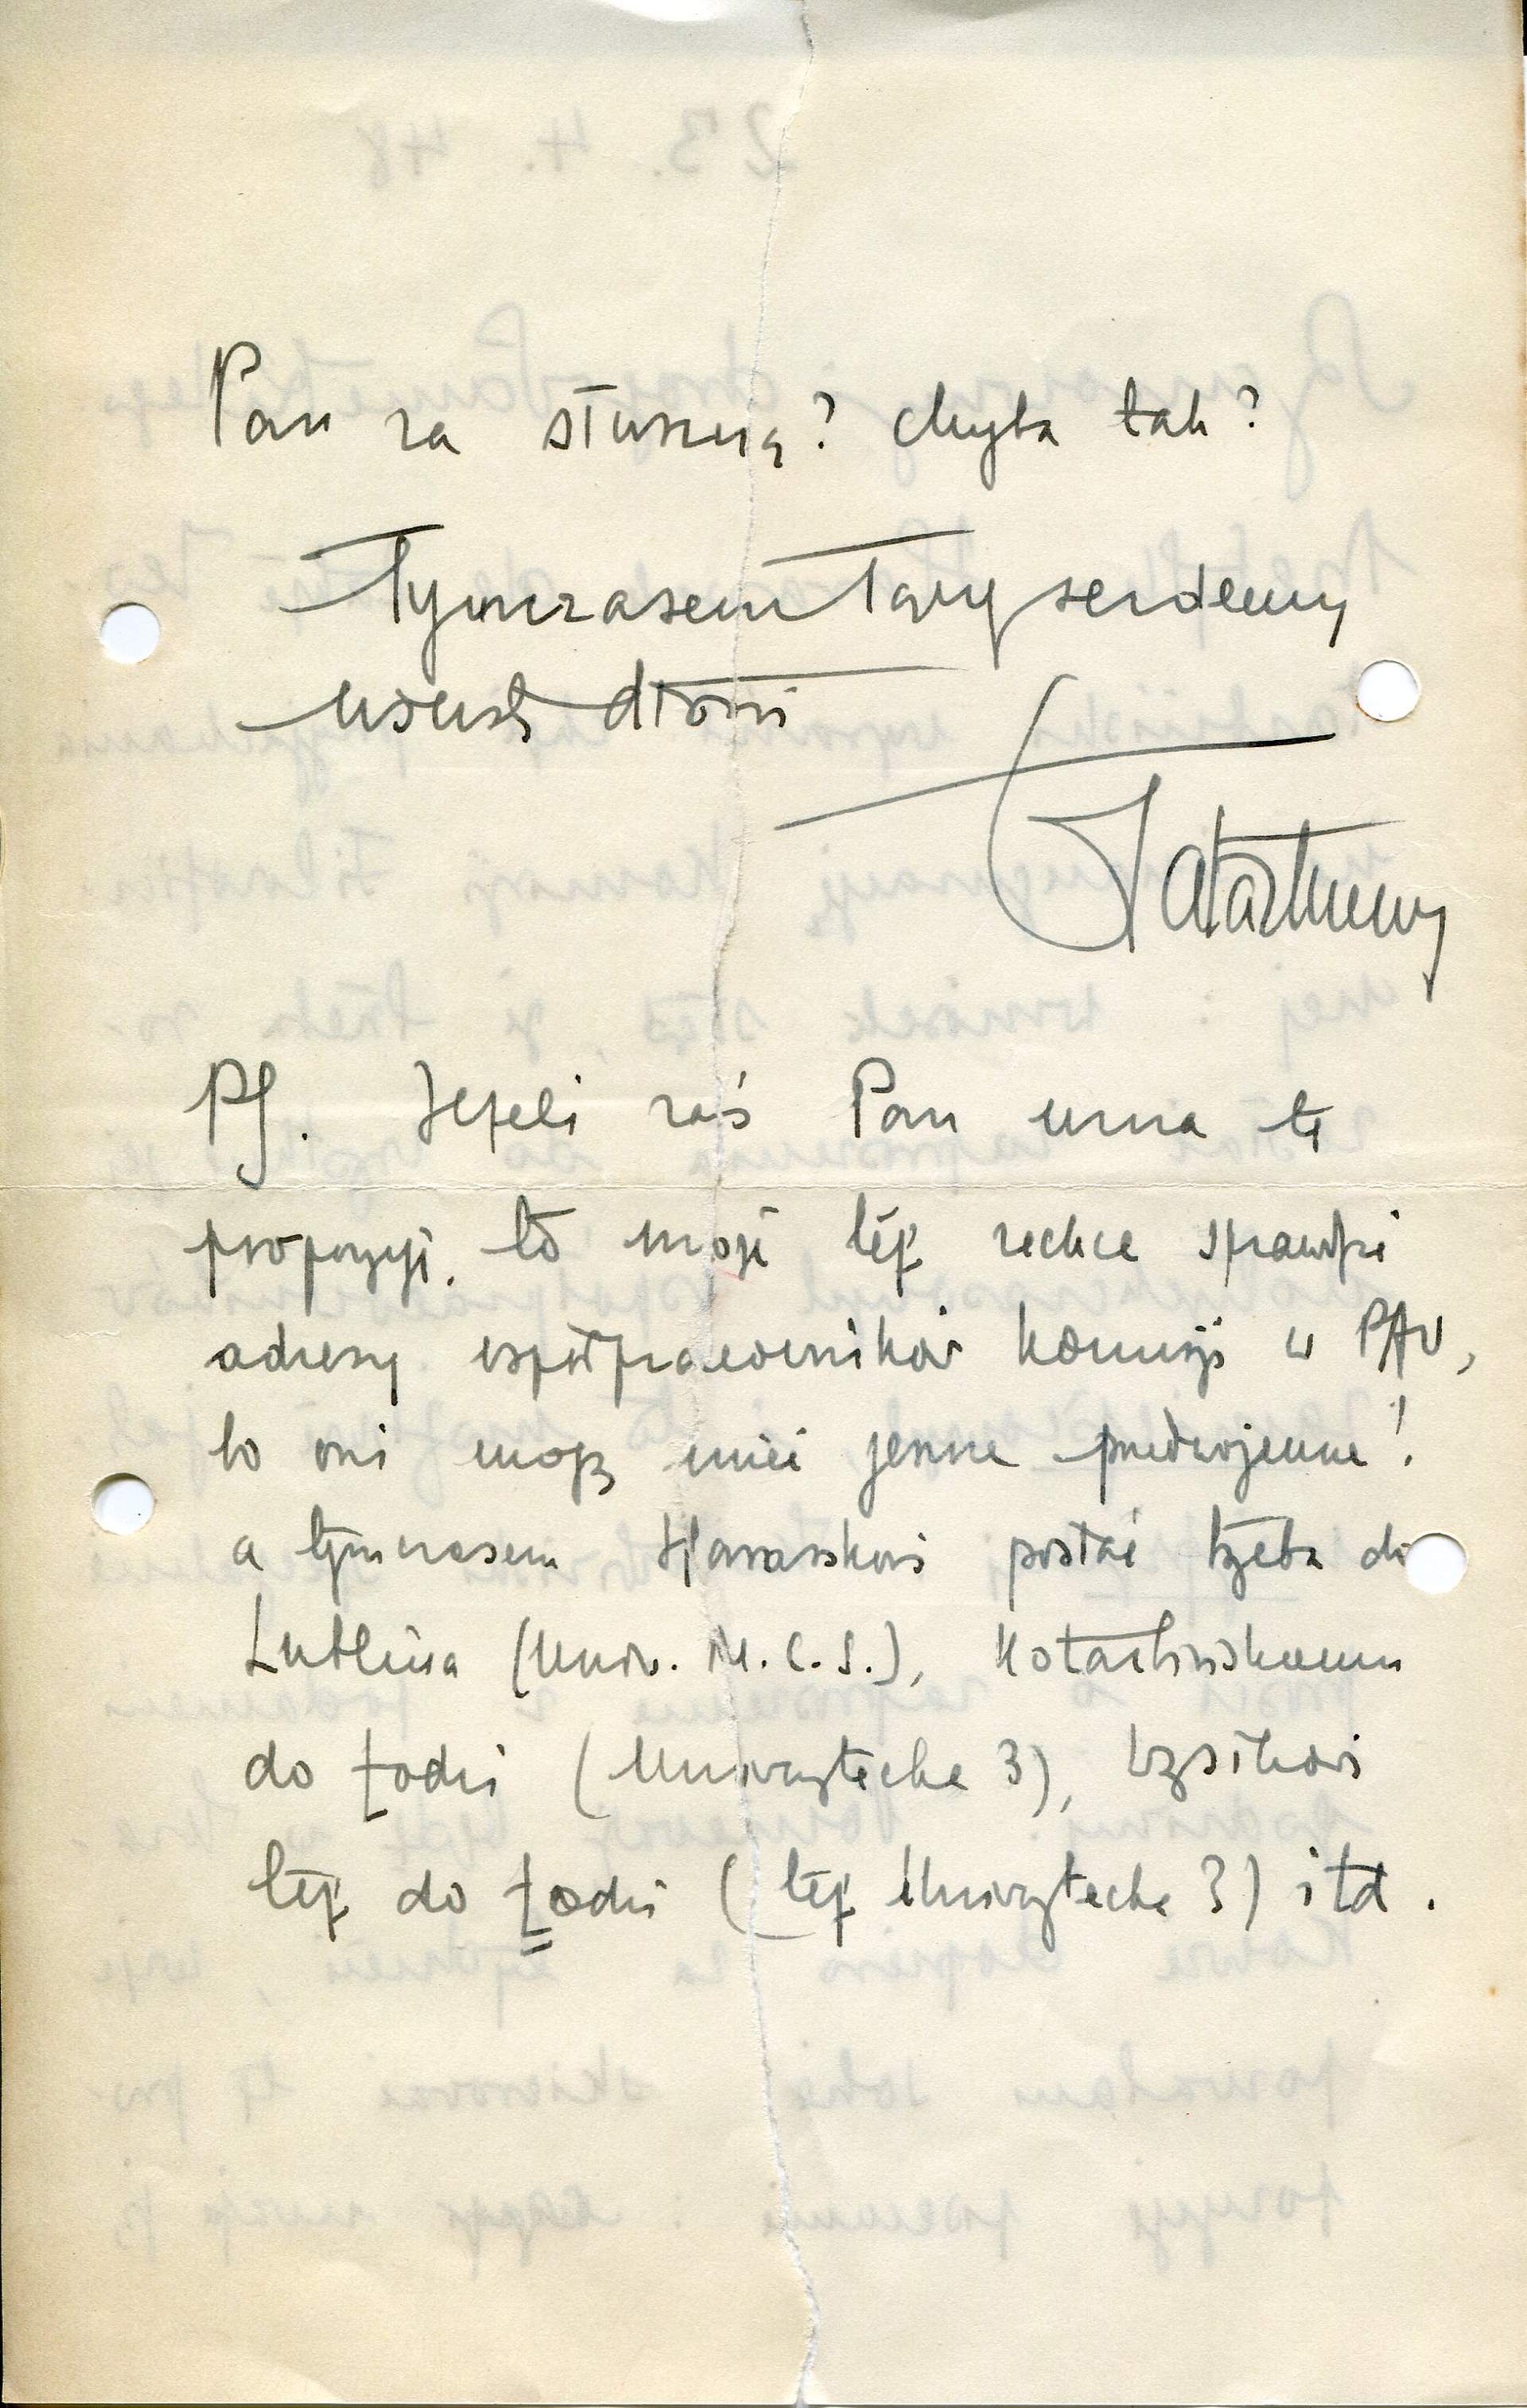 Pan za słuszną? chyba tak?
Tymczasem łączę serdeczny
uścisk dłoni
Tatarkiewicz
PS. Jeżeli zaś Pan uzna tę
propozycję, to może też zechce sprawdzi
adresy współpracowników Komisji w PAU,
bo oni mogą mieć jeszcze przedwojenne!
a tymczasem posłać trzeba do
Lublina (Uniw. M.C.S.), Kotarbińskiemu
do Łodzi (Uniwersytecka 3),
też do Łodzi (też Uniwersytecka 3) itd.